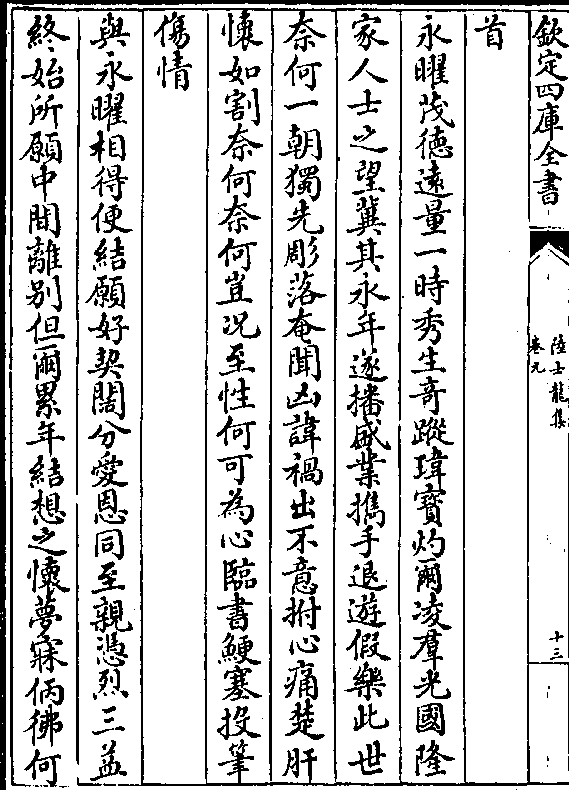 欽定四庫全書
陸士龍集
卷九
十三
首
永曜茂徳逺量一時秀生奇蹤瑋寳灼爾凌羣光國隆
家人士之望冀其永年遂播盛業擕手退遊假樂此世
奈何一朝獨先彫落奄聞凶諱禍出不意拊心痛楚肝
懐如割奈何奈何豈况至性何可為心臨書鯁塞投筆
傷情
與永曜相得便結願好契闊分愛恩同至親憑烈三益
終始所願中間離别但爾累年結想之懐夢寐仿彿何